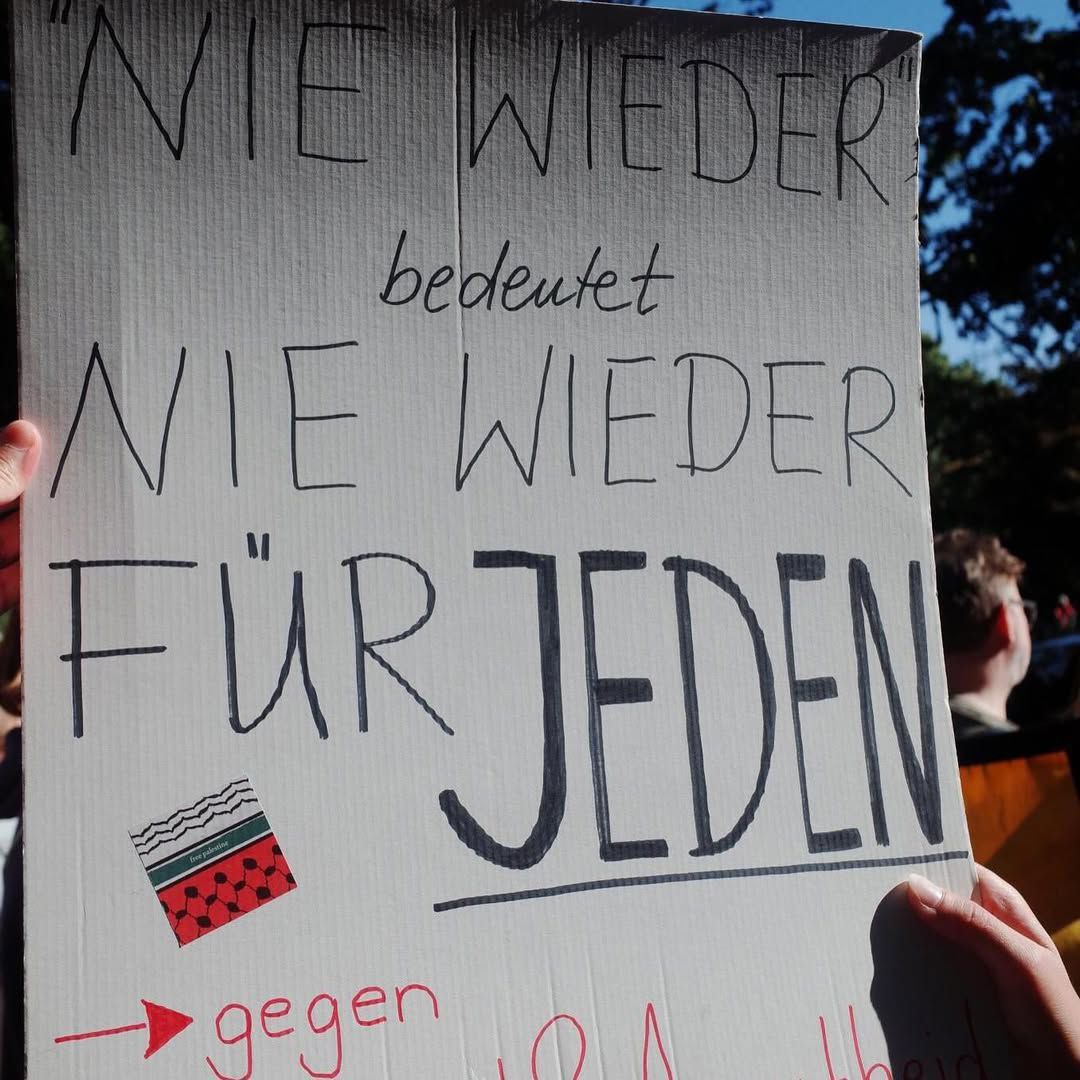 "NIE WIEDER"
bedeutet
NIE WIEDER
FÜR JEDEN
free palestine
gegen